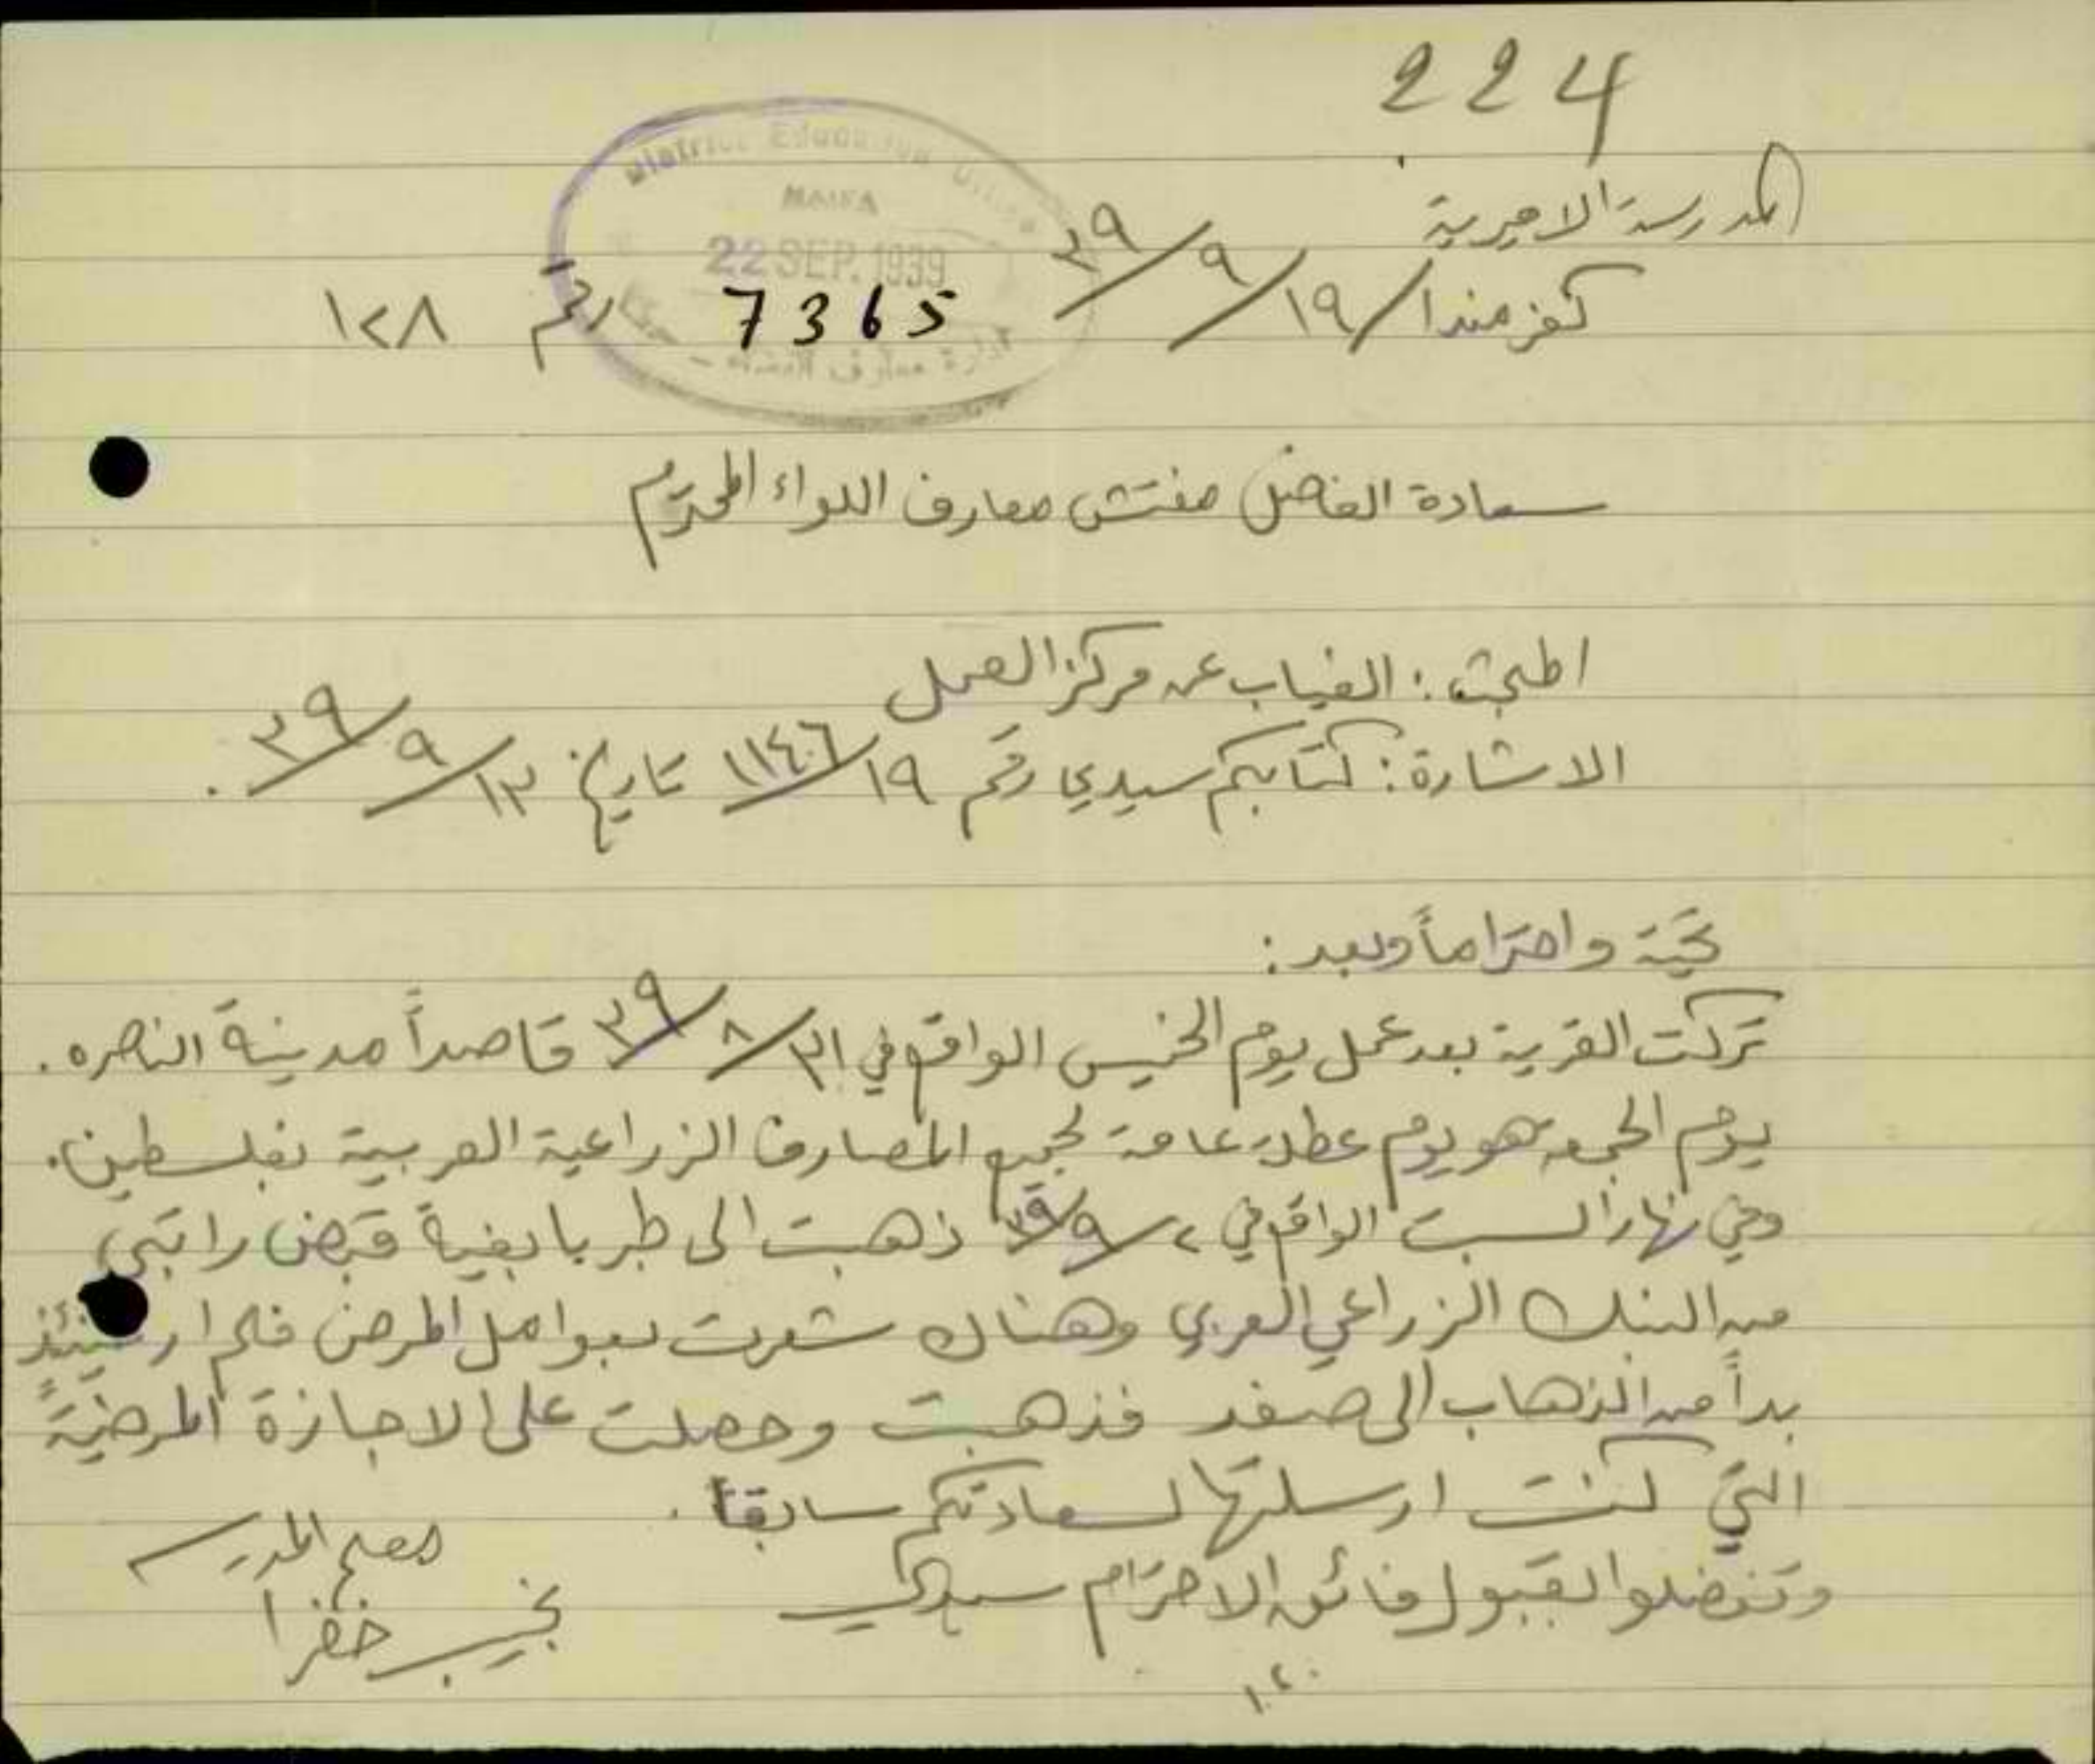 224
المدرسة الاميرية
كفرمندا ١٩/٩/٣٩
District Education Office
HAIFA
22 SEP. 1939
7365
رقم ١٢٨
ادارة معارف اللواء - حيفا
سعادة الفاضل مفتش معارف اللواء المحترم
المبحث: الغياب عن مركز العمل
الاشارة: كتابكم سيدي رقم ١١٤٠٦/١٩ تاريخ ١٣/٩/٣٩.
تحية واحتراماً وبعد:
تركت القرية بعد عمل يوم الخميس الواقع في ٣١/٨/٣٩ قاصداً مدينة الناصره.
يوم الجمعة هو يوم عطلة عامة لجميع المصارف الزراعية العربية بفلسطين.
وفي نهار السبت الواقع في ٢/٩/٣٩ ذهبت الى طبريا بغية قبض راتبي
من البنك الزراعي العربي وهناك شعرت بعوامل المرض فلم ار حينئذٍ
بداً من الذهاب الى صفد فذهبت وحصلت على الاجازة المرضيّة
التي كنت ارسلتها لسعادتكم سابقاً.
وتفضلوا بقبول فائق الاحترام سيدي
معلم المدرسه
نجيب خفرا